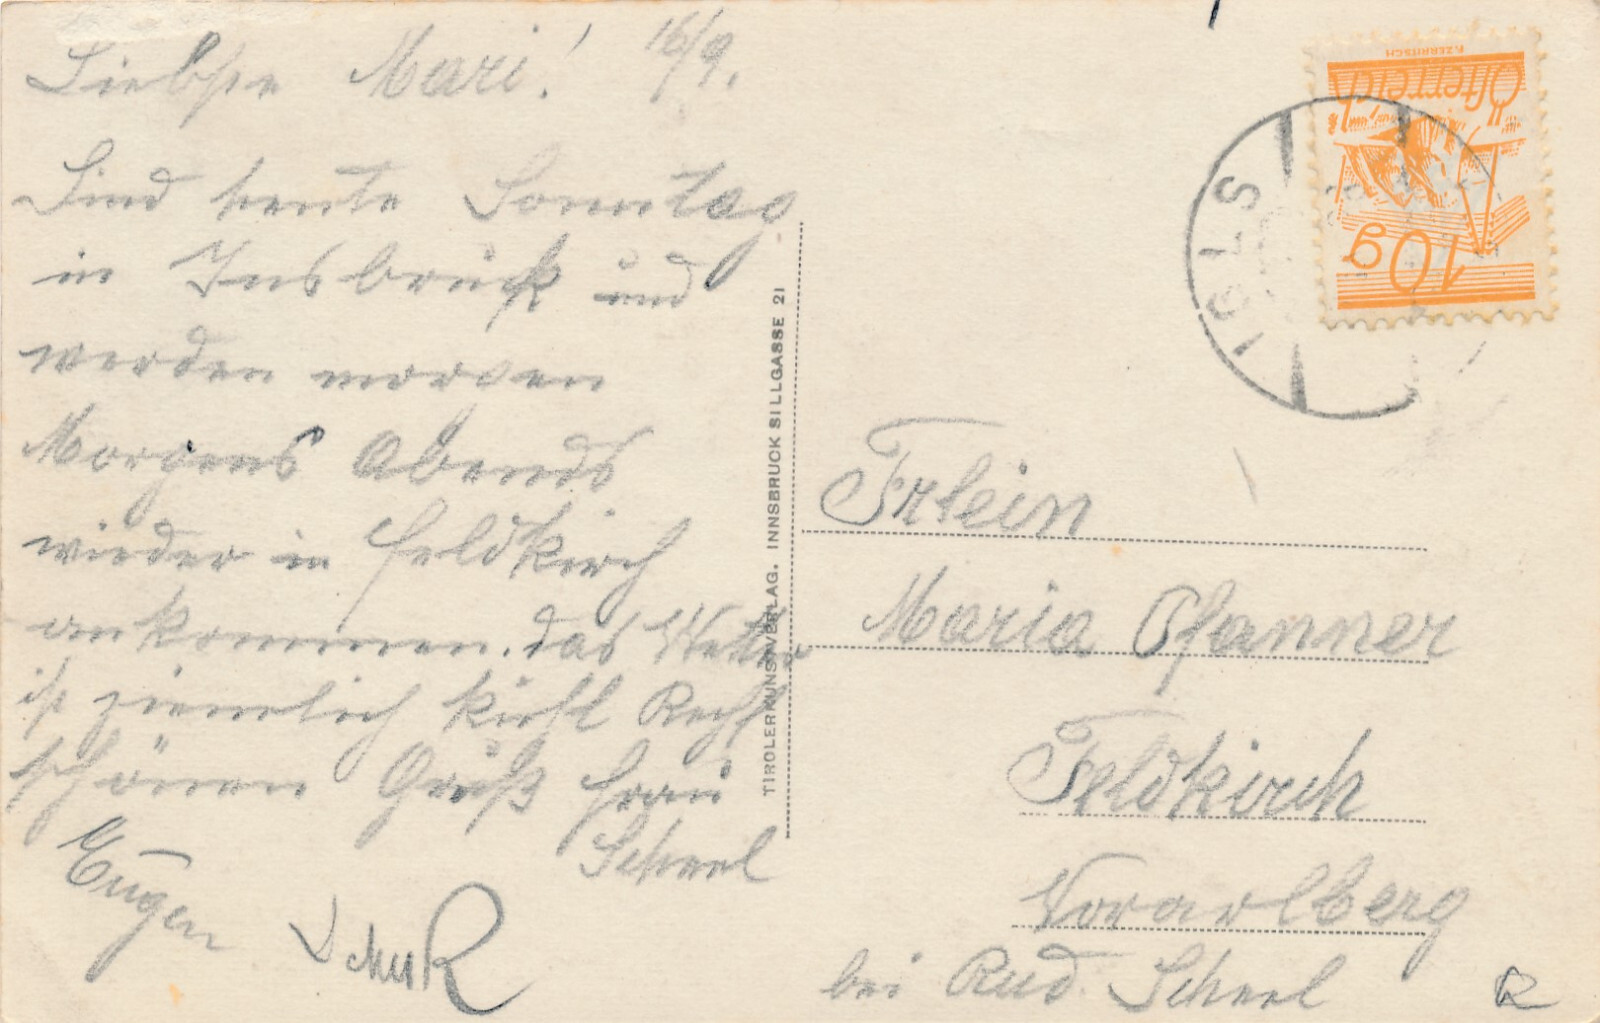 Liebste Mari! 16/9.
Sind heute Sonntag
in Insbruck und
werden morgen
Morgens Abends
wieder in Feldkirch
ankommen. das Wetter
ist ziemlich kühl Recht
schönen Gruß Frau
Scheel
Eugen
TIROLERKUNSTVERLAG. INNSBRUCK SILLGASSE 21
F.ZERRITSCH
Österreich
10g
IGLS
Frlein
Maria Pfanner
Feldkirch
Vorarlberg
bei Rud. Scheel
R